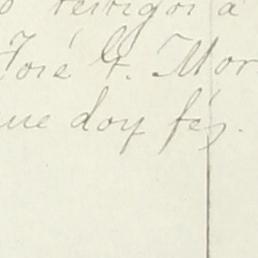 o testigos á
José G. Mor
que doy fé,